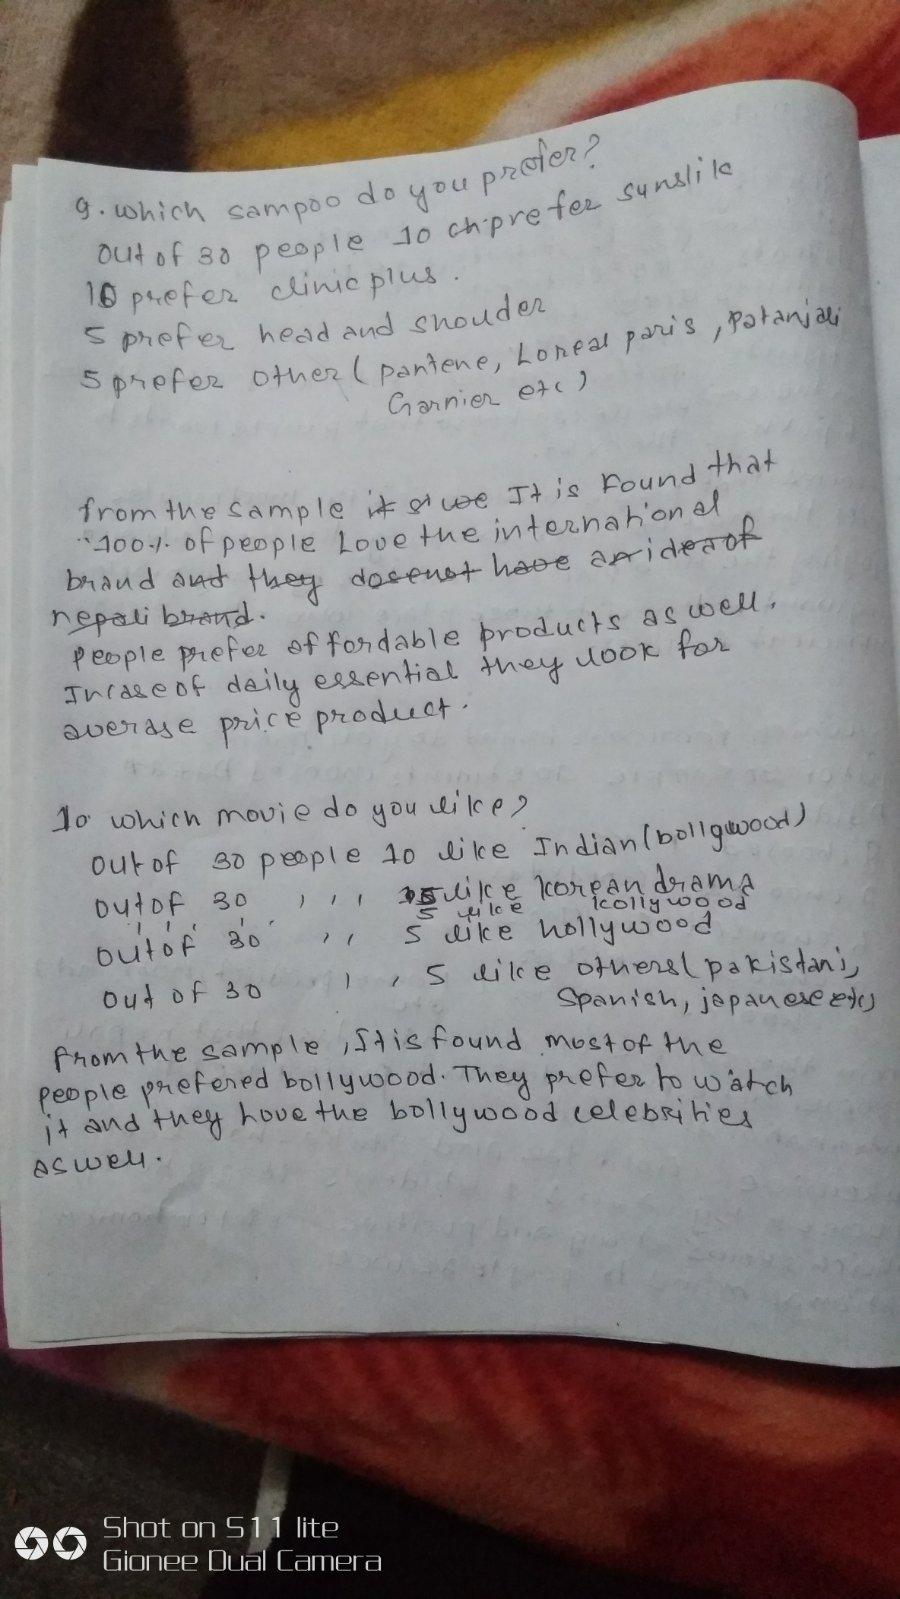 9. which sampoo do you prefer?
out of 30 people 10 ch prefer sunslik
10 prefer clinic plus.
5 prefer head and shouder
5 prefer other (pantene, Loreal paris, Patanjali
Garnier etc)
from the sample it It is Found that
100% of people Love the international
brand and they doesenot have an idea of
nepali brand.
People prefer affordable products as well.
Incase of daily essential they look for
average price product.
10 which movie do you like?
out of 30 people 10 like Indian (bollywood)
out of 30 ,,, 5 like korean drama
5 like kollywood
out of 30 ,, 5 like hollywood
out of 30 ,, 5 like others (pakistani,
Spanish, japanese etc)
From the sample, It is found most of the
people prefered bollywood. They prefer to watch
it and they love the bollywood celebrities
as well.
Shot on S11 lite
Gionee Dual Camera